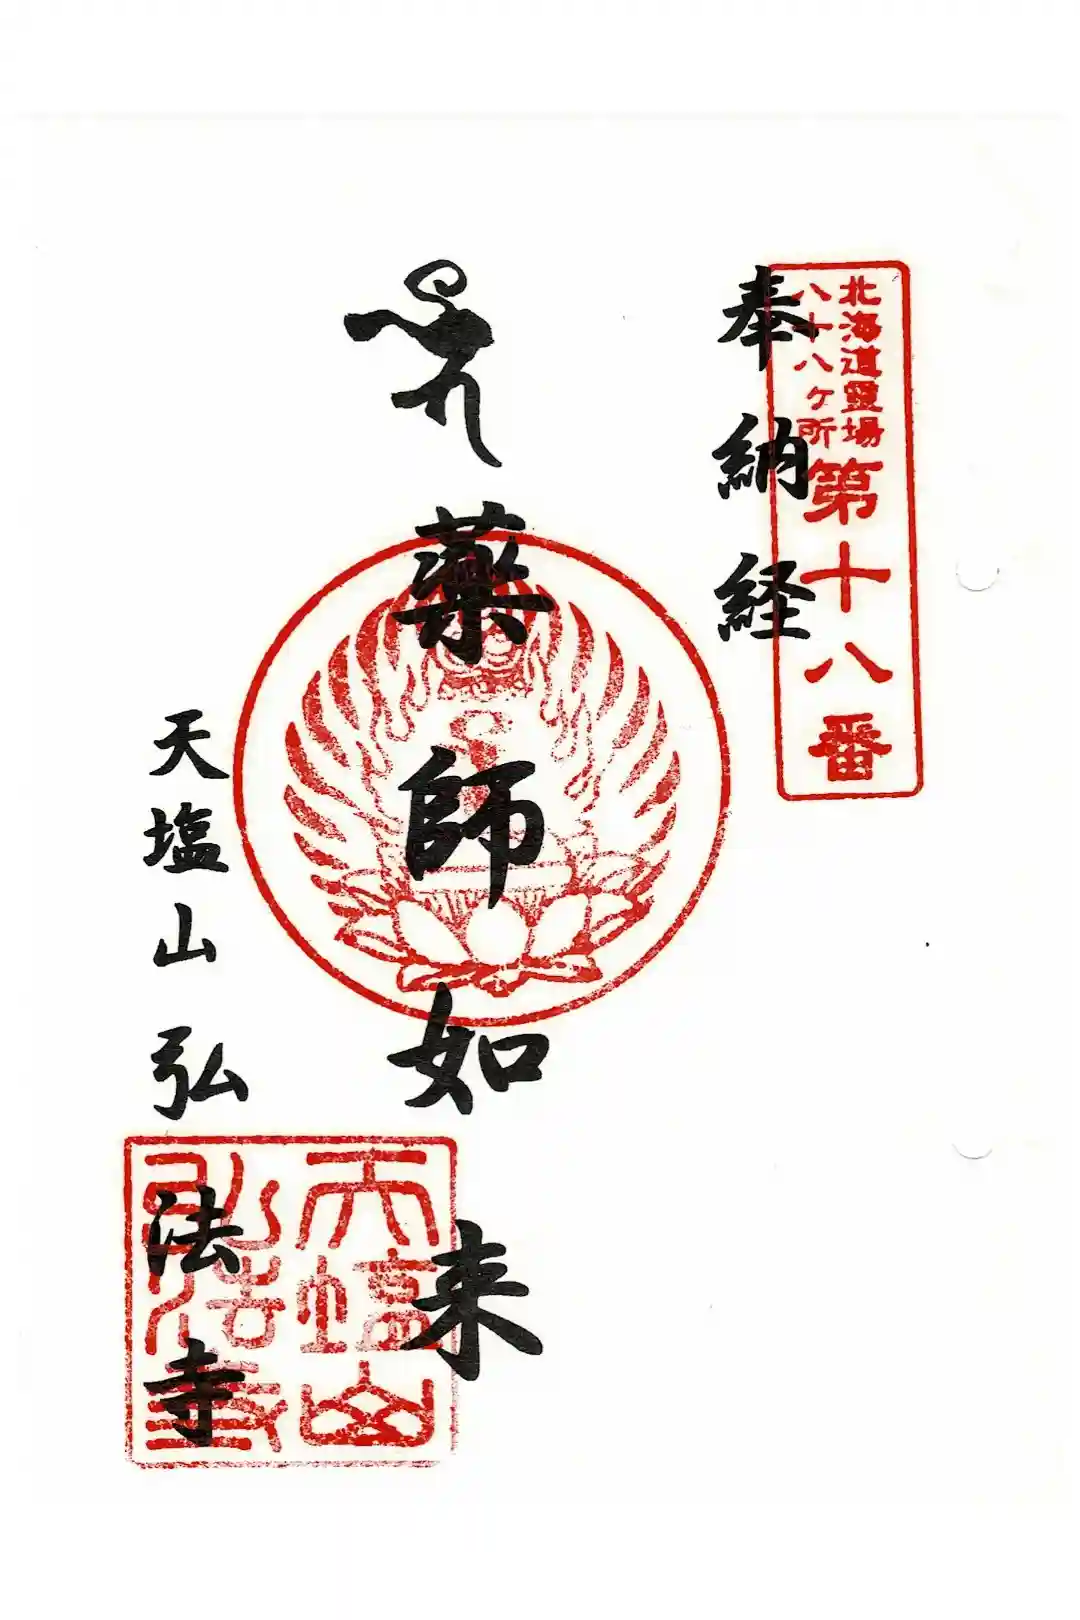 北海道霊場
八十八ヶ所
第十八番
奉納経
薬師如来
天塩山弘法寺
天塩山
弘法寺